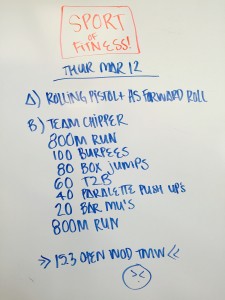 SPORT
OF
FITNESS!
THUR MAR 12
A) ROLLING PISTOL + AS FORWARD ROLL
B) TEAM CHIPPER
800M RUN
100 BURPEES
80 BOX JUMPS
60 T2B
40 PARALETTE PUSH UP'S
20 BAR MU'S
800M RUN
>> 15.3 OPEN WOD TMW <<